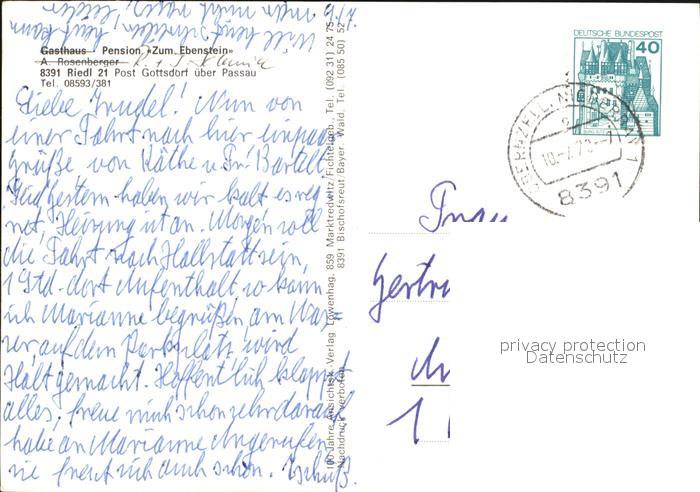 Gasthaus Pension »Zum Ebenstein«
A. Rosenberger
8391 Riedl 21 Post Gottsdorf über Passau
Tel. 08593/381
Liebe Trudel! Nun von
einer Fahrt nach hier ein paar
Grüße von Käthe u. Fr. Bartelt.
Seid gestern haben wir kalt es reg
net, Heizung ist an. Morgen soll
die Fahrt nach Hallstatt sein,
1 Std. dort Aufenthalt so kann
ich Marianne begrüßen am Was=
ser, auf dem Parkplatz wird
Halt gemacht. Hoffentlich klappt
alles, freue mich schon sehr darauf
habe an Marianne Angerufen
sie freut sich auch schon. Tschüß.
100 Jahre Ansichtsk. Verlag Löwenhag, 859 Marktredwitz/Fichtelgeb., Tel. (092 31) 24 75
Nachdruck verboten 8391 Bischofsreut/Bayer. Wald, Tel. (085 50) 52
DEUTSCHE BUNDESPOST
40
BURG ELTZ
OBERNZELL, NIEDERBAY 1
8391
Frau
Gertru
privacy protection
Datenschutz